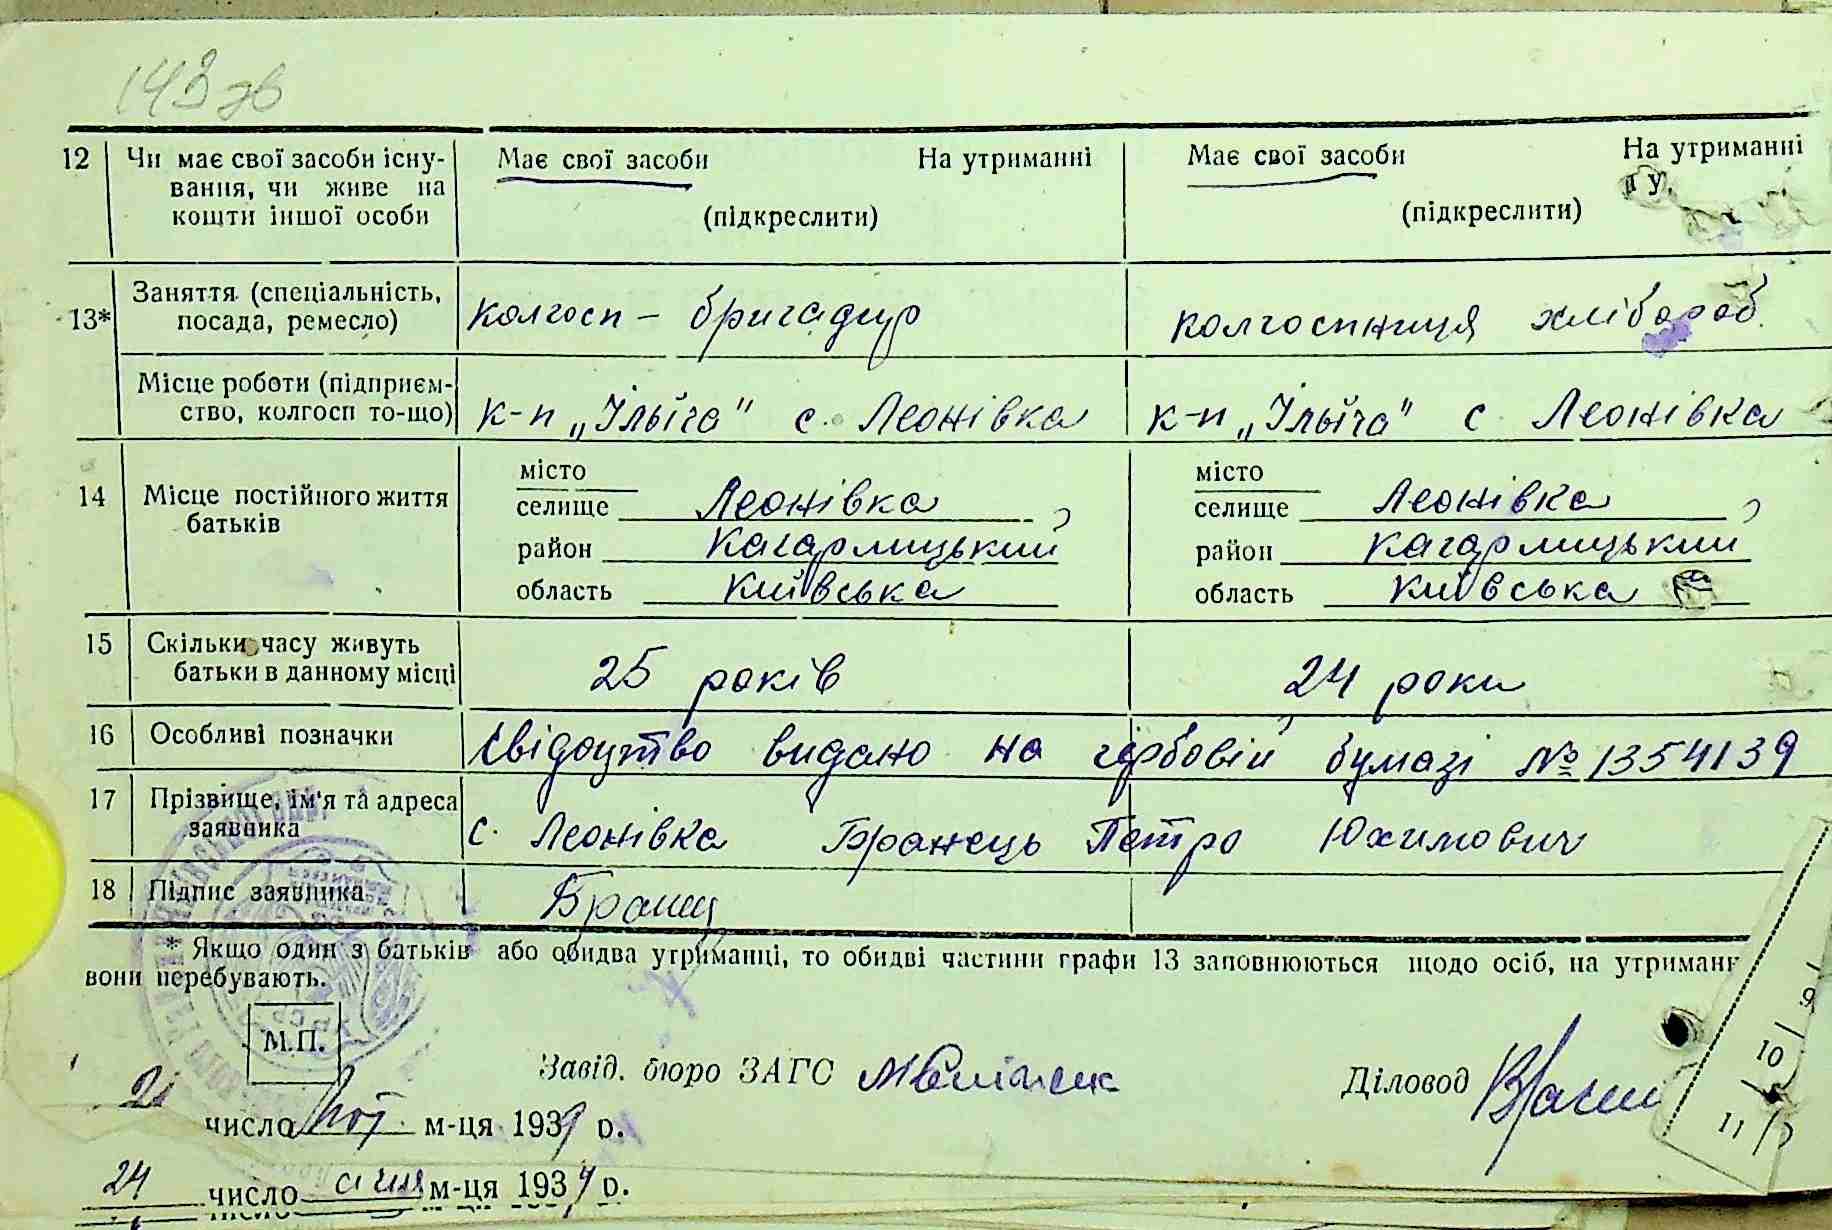 143 зв
12 Чи має свої засоби існу- Має свої засоби На утриманні Має свої засоби На утриманні
вання, чи живе на
кошти іншої особи (підкреслити) (підкреслити)
13* Заняття (спеціальність, посада, ремесло) колгосп – бригадир колгоспниця хлібороб
Місце роботи (підприєм-
ство, колгосп то-що) к-п „Ільїча" с. Леонівка к-п „Ільїча" с Леонівка
14 Місце постійного життя
батьків
місто місто
селище Леонівка селище Леонівка
район Кагарлицький район Кагарлицький
область Київська область Київська
15 Скільки часу живуть
батьки в данному місці 25 років 24 роки
16 Особливі позначки Свідоцтво видано на гербовій бумазі № 1354139
17 Прізвище, ім'я та адреса
заявника с. Леонівка Бранець Петро Юхимович
18 Підпис заявника Бранец
* Якщо один з батьків або обидва утриманці, то обидві частини графи 13 заповнюються щодо осіб, на утриманн
вони перебувають.
М.П.
Завід. бюро ЗАГС Діловод
число м-ця 1939 р.
24 число січня м-ця 193 р.
9
10
11